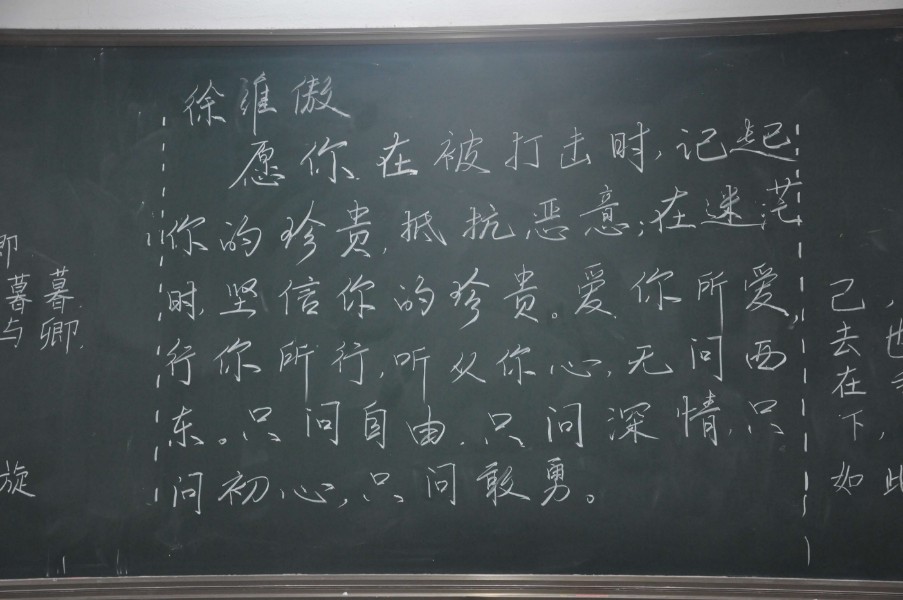 徐维傲
愿你在被打击时,记起
你的珍贵,抵抗恶意;在迷茫
时,坚信你的珍贵。爱你所爱,
行你所行,听从你心,无问西
东。只问自由,只问深情,只
问初心,只问敢勇。
即
暮暮
与卿.
旋
己,
去也
在
下,
如此